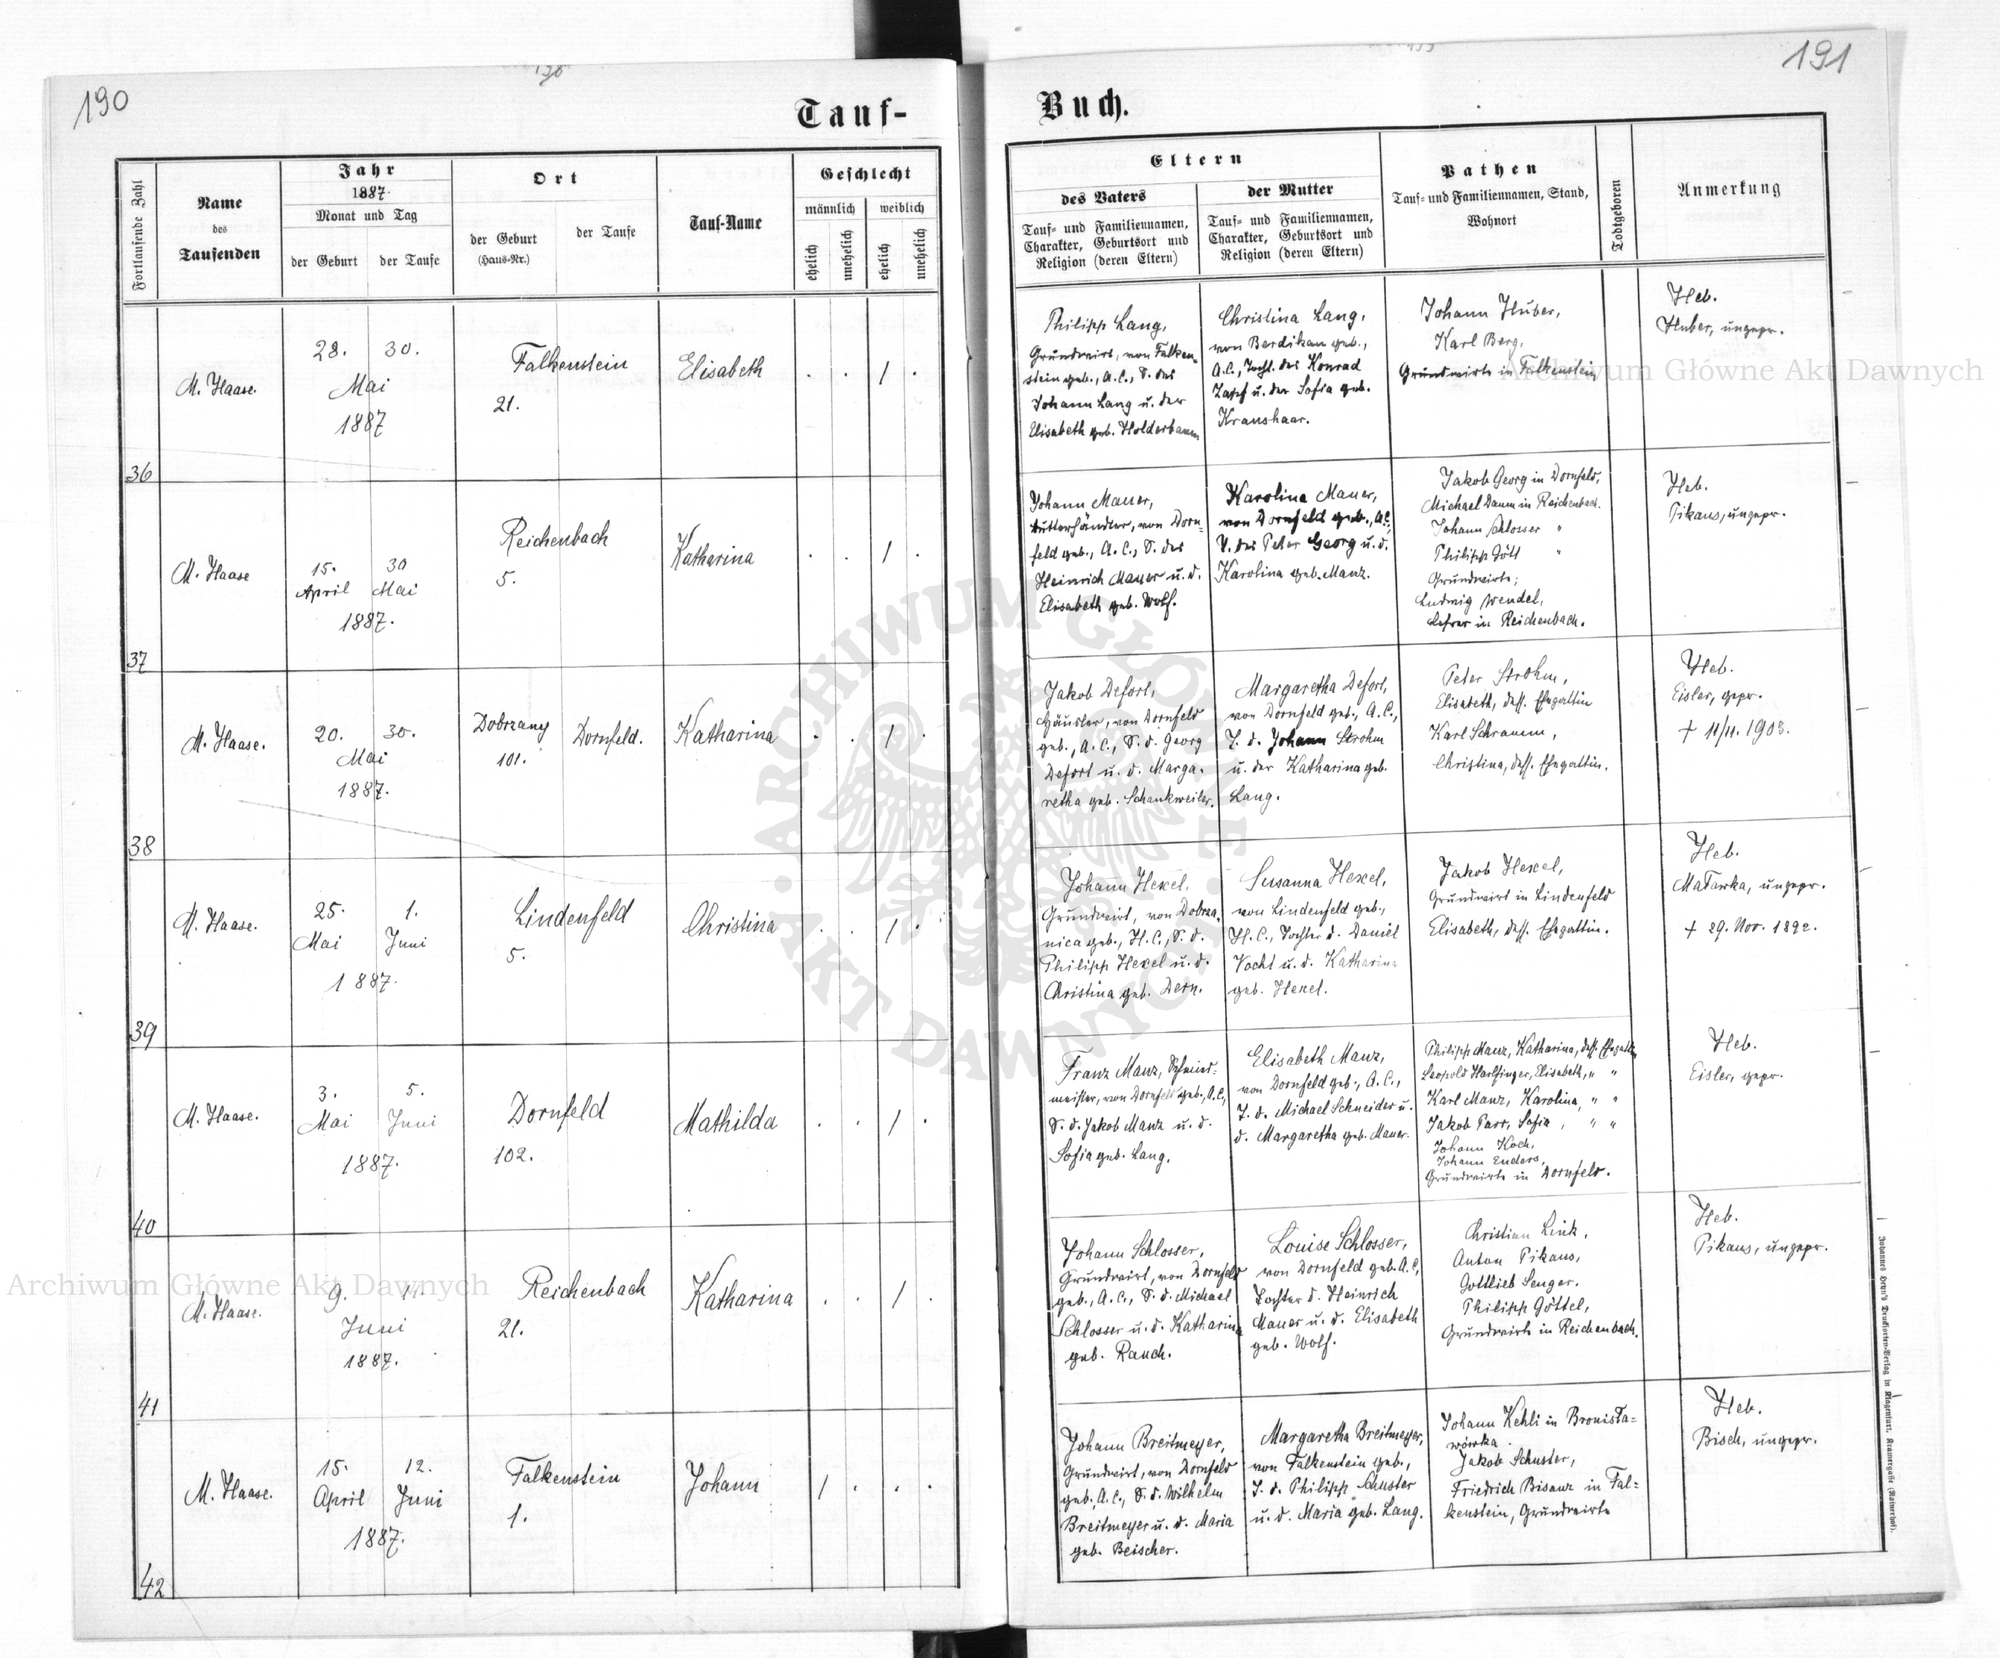 190
191
Tauf-
Buch.
Fortlaufende Zahl
Name
des
Taufenden
Jahr
1887.
Monat und Tag
der Geburt
der Taufe
Ort
der Geburt
(Haus-Nr.)
der Taufe
Tauf-Name
Geschlecht
männlich
weiblich
ehelich
unehelich
ehelich
unehelich
Eltern
des Vaters
Tauf- und Familiennamen,
Charakter, Geburtsort und
Religion (deren Eltern)
der Mutter
Tauf- und Familiennamen,
Charakter, Geburtsort und
Religion (deren Eltern)
Pathen
Tauf- und Familiennamen, Stand,
Wohnort
Todtgeboren
Anmerkung
36
M. Haase.
28. 30.
Mai
1887
Falkenstein
21.
Elisabeth
Philipp Lang,
Grundwirt, von Falken-
stein geb., A.C., S. des
Johann Lang u. der
Elisabeth geb. Holderbaum
Christina Lang,
von Berdikau geb.,
A.C., Tocht. des Konrad
Zapf u. der Sofia geb.
Kraushaar.
Johann Huber,
Karl Berg,
Grundwirte in Falkenstein
Heb.
Huber, ungepr.
37
M. Haase
15. 30
April Mai
1887.
Reichenbach
5.
Katharina
Johann Mauer,
Butterhändler, von Dorn-
feld geb., A.C., S. des
Heinrich Mauer u. d.
Elisabeth geb. Wolf.
Karolina Mauer,
von Dornfeld geb., A.C.,
T. des Peter Georg u. d.
Karolina geb. Manz.
Jakob Georg in Dornfeld,
Michael Daum in Reichenbach.
Johann Schlosser "
Philipp Gött "
Grundwirte;
Ludwig Wendel,
Lehrer in Reichenbach.
Heb.
Pikaus, ungepr.
38
M. Haase.
20. 30.
Mai
1887.
Dobrzany
101.
Dornfeld.
Katharina
Jakob Defort,
Häusler, von Dornfeld
geb., A.C., S. d. Georg
Defort u. d. Marga-
retha geb. Schankweiler.
Margaretha Defort,
von Dornfeld geb., A.C.,
T. d. Johann Strohm
u. der Katharina geb.
Lang.
Peter Strohm,
Elisabeth, dess. Ehegattin
Karl Schramm,
Christina, dess. Ehegattin.
Heb.
Eisler, gepr.
† 11/11. 1903.
39
M. Haase.
25. 1.
Mai Juni
1887.
Lindenfeld
5.
Christina
Johann Hexel,
Grundwirt, von Dobrza-
nica geb., H.C., S. d.
Philipp Hexel u. d.
Christina geb. Dern.
Susanna Hexel,
von Lindenfeld geb.,
H.C., Tochter d. Daniel
Vocht u. d. Katharina
geb. Hexel.
Jakob Hexel,
Grundwirt in Lindenfeld
Elisabeth, dess. Ehegattin.
Heb.
Matawka, ungepr.
† 29. Nov. 1892.
40
M. Haase.
3. 5.
Mai Juni
1887.
Dornfeld
102.
Mathilda
Franz Manz, Schmied-
meister, von Dornfeld geb., A.C.,
S. d. Jakob Manz u. d.
Sofia geb. Lang.
Elisabeth Manz,
von Dornfeld geb., A.C.,
T. d. Michael Schneider u.
d. Margaretha geb. Mauer.
Philipp Manz, Katharina, dess. Ehegattin
Leopold Harlfinger, Elisabeth, " "
Karl Manz, Karolina, " "
Jakob Parr, Sofia, " "
Johann Koch.
Johann Enders,
Grundwirte in Dornfeld.
Heb.
Eisler, gepr.
41
M. Haase.
9. 11.
Juni
1887.
Reichenbach
21.
Katharina
Johann Schlosser,
Grundwirt, von Dornfeld
geb., A.C., S. d. Michael
Schlosser u. d. Katharina
geb. Rauch.
Louise Schlosser,
von Dornfeld geb. A.C,
Tochter d. Heinrich
Mauer u. d. Elisabeth
geb. Wolf.
Christian Link,
Anton Pikaus,
Gottlieb Senger.
Philipp Göttel,
Grundwirte in Reichenbach.
Heb.
Pikaus, ungepr.
42
M. Haase.
15. 12.
April Juni
1887.
Falkenstein
1.
Johann
Johann Breitmeyer,
Grundwirt, von Dornfeld
geb., A.C., S. d. Wilhelm
Breitmeyer u. d. Maria
geb. Beischer.
Margaretha Breitmeyer,
von Falkenstein geb.,
T. d. Philipp Schuster
u. d. Maria geb. Lang.
Johann Kehli in Bronisla-
wówka
Jakob Schuster,
Friedrich Bisanz in Fal-
kenstein, Grundwirte
Heb.
Bisch, ungepr.
Johannes Heyn's Drucksorten-Verlag in Klagenfurt, Kramergasse (Rainerhof).
Archiwum Główne Akt Dawnych
Archiwum Główne Akt Dawnych
ARCHIWUM GŁÓWNE AKT DAWNYCH